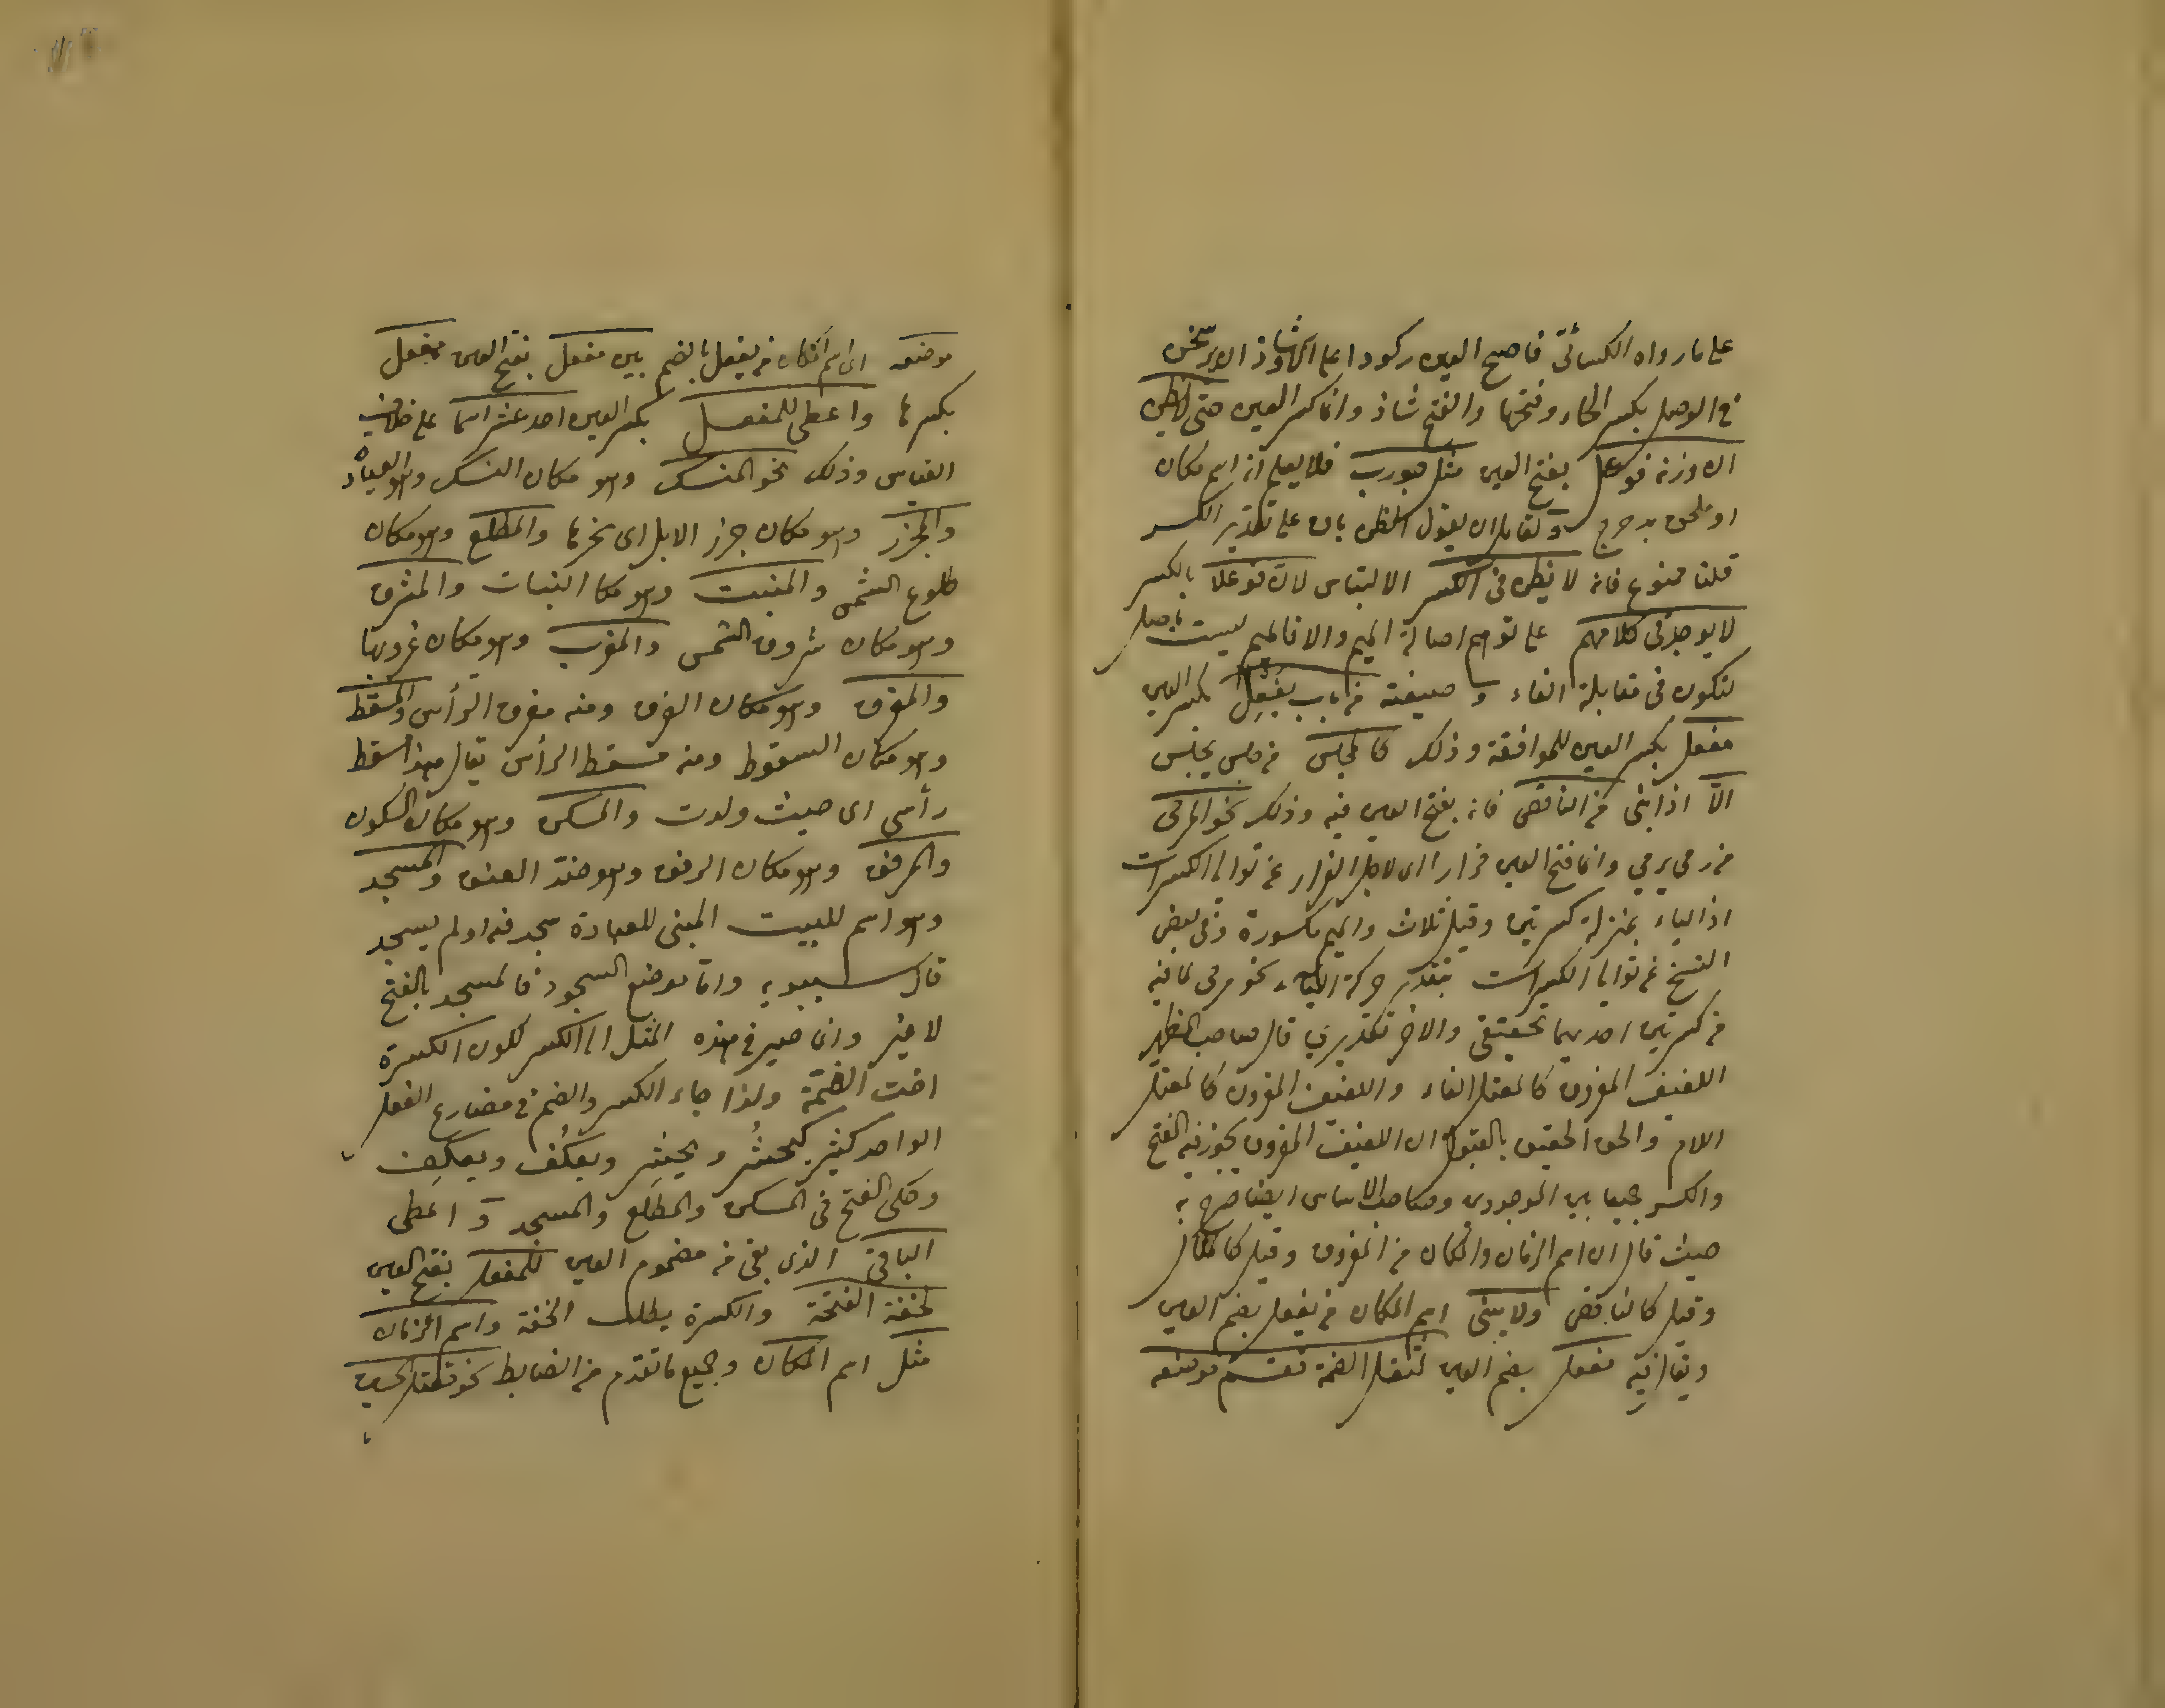 على ما رواه الكسائى فاصح العين ركودا على الشاذ
فى الوحل بكسر الحاء وفتحها والفتح شاذ وانما كسر العين حتى لا يظن
ان وزنه فوعل بفتح العين مثل جورب فلا يعلم انه اسم مكان
او ملحق بدحرج ولقائل ان يقول الظن باق على تقدير الكسر
قلنا ممنوع فانه لا يظن فى الكسر الالتباس لان فوعلا بالكسر
لا يوجد فى كلامهم على توهم اصالة الميم والا فالميم ليست باصل
لتكون فى مقابلة الفاء وصيغته من باب يَفْعِل بكسر العين
مفعل بكسر العين للموافقة وذلك كالمجلس من جلس يجلس
الّا اذا بنى من الناقص فانه بفتح العين فيه وذلك نحو المرمى
من رمى يرمى وانما فتح العين فرارا اى لاجل الفرار عن توالى الكسرات
اذ الياء بمنزلة كسرتين وقيل ثلاث والميم مكسورة وفى بعض
النسخ عن توالى الكسرات بتقدير حركة الياء نحو مرمى لما فيه
من كسرتين احديهما تحقيقى والاخر تقديرى قال صاحب
اللفيف المفروق كالمعتل الفاء واللفيف المقرون كالمعتل
اللام والحق الحقيق بالقبول ان اللفيف المفروق يجوز فيه الفتح
والكسر جميعا بين الموجودين وصاحب الاساس ايضا صرح به
حيث قال ان اسم الزمان والمكان من المفروق وقيل كالمثال
وقيل كالناقص ولا يبنى اسم المكان من يفعل بضم العين
ويقال فيه مفعل بضم العين لثقل الضمة فقسم
موضعه اى اسم المكان من يفعل بالضم بين مفعل بفتح العين ومفعل
بكسرها واعطى للمفعل بكسر العين احد عشر اسما على خلاف
القياس وذلك نحو المنسك وهو مكان النسك وهو العبادة
والمجزر وهو مكان جزر الابل اى نحرها والمطلع وهو مكان
طلوع الشمس والمنبت وهو مكا النبات والمشرق
وهو مكان شروق الشمس والمغرب وهو مكان غروبها
والمفرق وهو مكان الفرق ومنه مفرق الرأس والمسقط
وهو مكان السقوط ومنه مسقط الرأس يقال هذا مسقط
رأسى اى حيث ولدت والمسكن وهو مكان السكون
والمرفق وهو مكان الرفق وهو ضد العنق والمسجد
وهو اسم للبيت المبنى للعبادة سجد فيه او لم يسجد
قال سيبويه واما موضع السجود فالمسجد بالفتح
لا غير وانما صير فى هذه المثل الى الكسر لكون الكسرة
اخت الضمّة ولذا جاء الكسر والضم فى مضارع الفعل
الواحد كثير كيحشُر ويحشِر ويعكُف ويعكِف
وحكى الفتح فى المسكن والمطلع والمسجد واعطى
الباقى الذى بقى من مضموم العين للمفعل بفتح العين
لخفة الفتحة والكسرة يطلب الخفة واسم الزمان
مثل اسم المكان وجميع ما تقدم من الضابط نحو مقتل الحسين